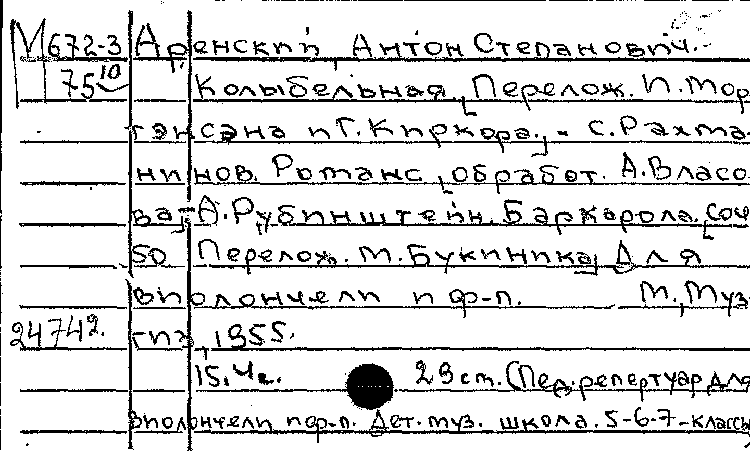 М 672-3 Аренский, Антон Степанович.
75 10 Колыбельная, [Перелож. П. Мор
генсена и Г. Киркора.] - С. Рахма
нинов. Романс, [обработ. А. Власо
ва]-А. Рубинштейн. Баркарола. [соч
50 Перелож. М. Букиника] Для
виолончели и ф-п. М., Муз
24742. гиз, 1955.
15, 4 с. 29 cm. (Пед. репертуар для
виолончели и ф-п. Дет. муз. школа. 5-6-7-классы